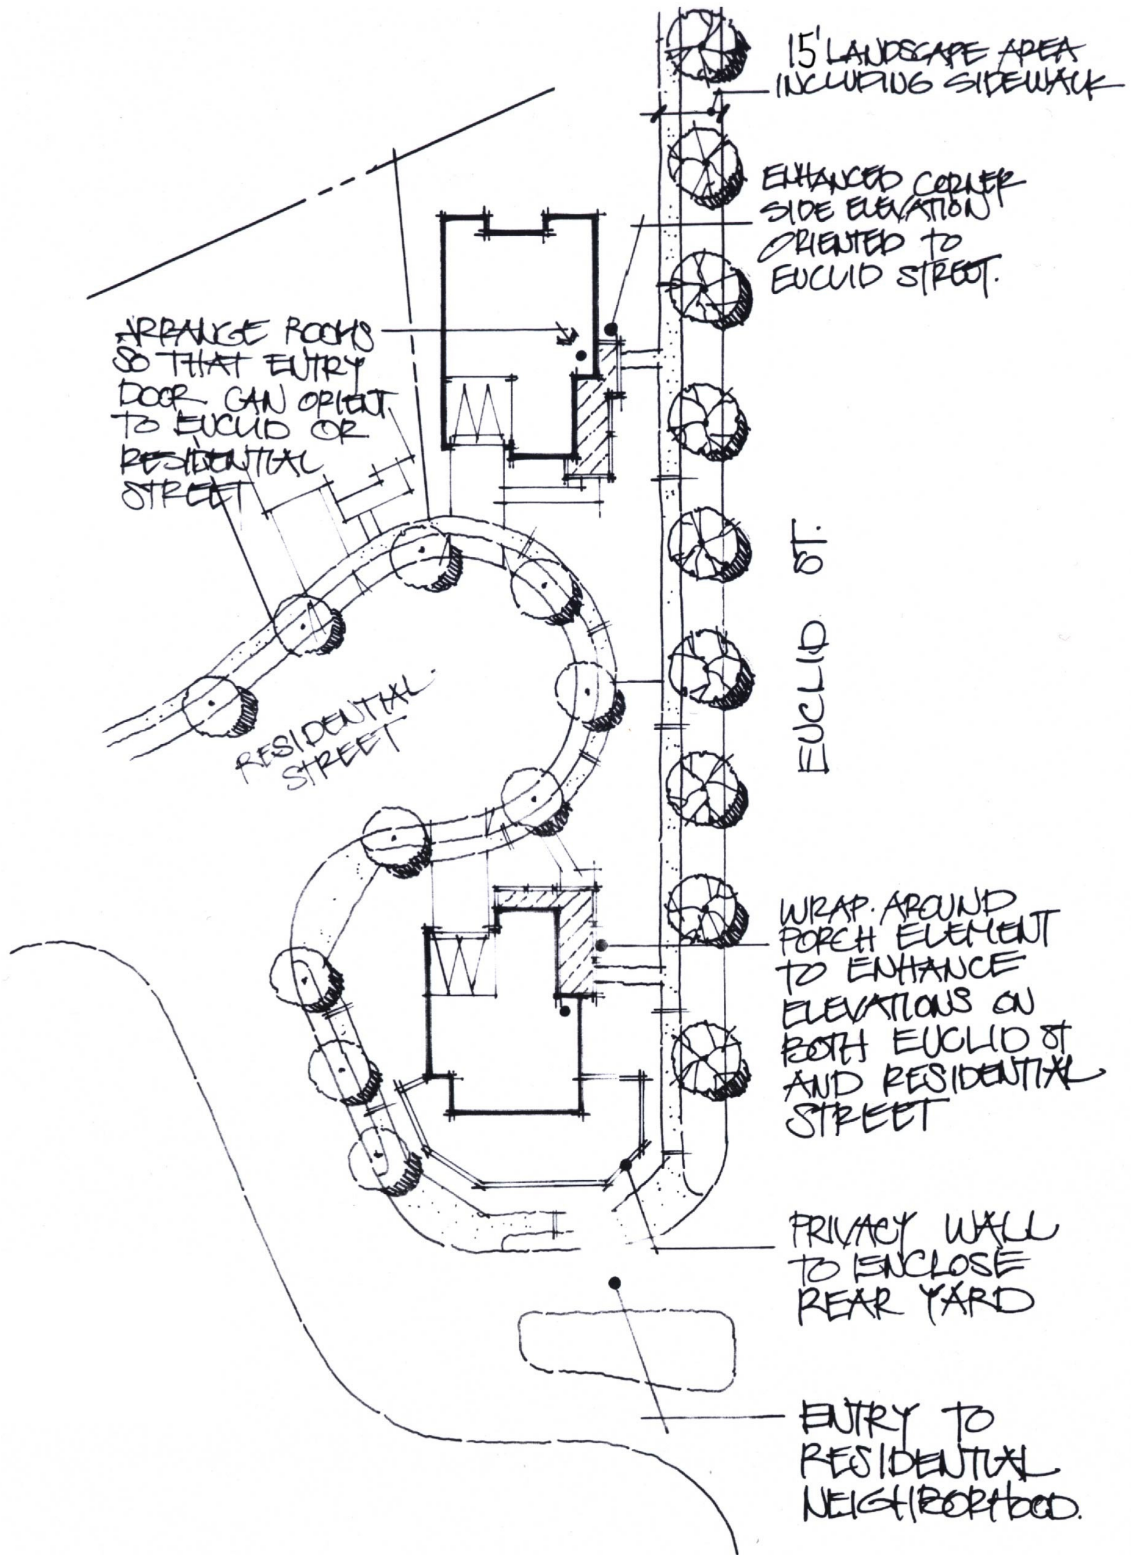 15' LANDSCAPE AREA
INCLUDING SIDEWALK
ENHANCED CORNER
SIDE ELEVATION
ORIENTED TO
EUCLID STREET.
ARRANGE ROOMS
SO THAT ENTRY
DOOR CAN ORIENT
TO EUCLID OR
RESIDENTIAL
STREET
EUCLID ST.
RESIDENTIAL
STREET
WRAP.AROUND
PORCH ELEMENT
TO ENHANCE
ELEVATIONS ON
BOTH EUCLID ST
AND RESIDENTIAL
STREET
PRIVACY WALL
TO ENCLOSE
REAR YARD
ENTRY TO
RESIDENTIAL
NEIGHBORHOOD.